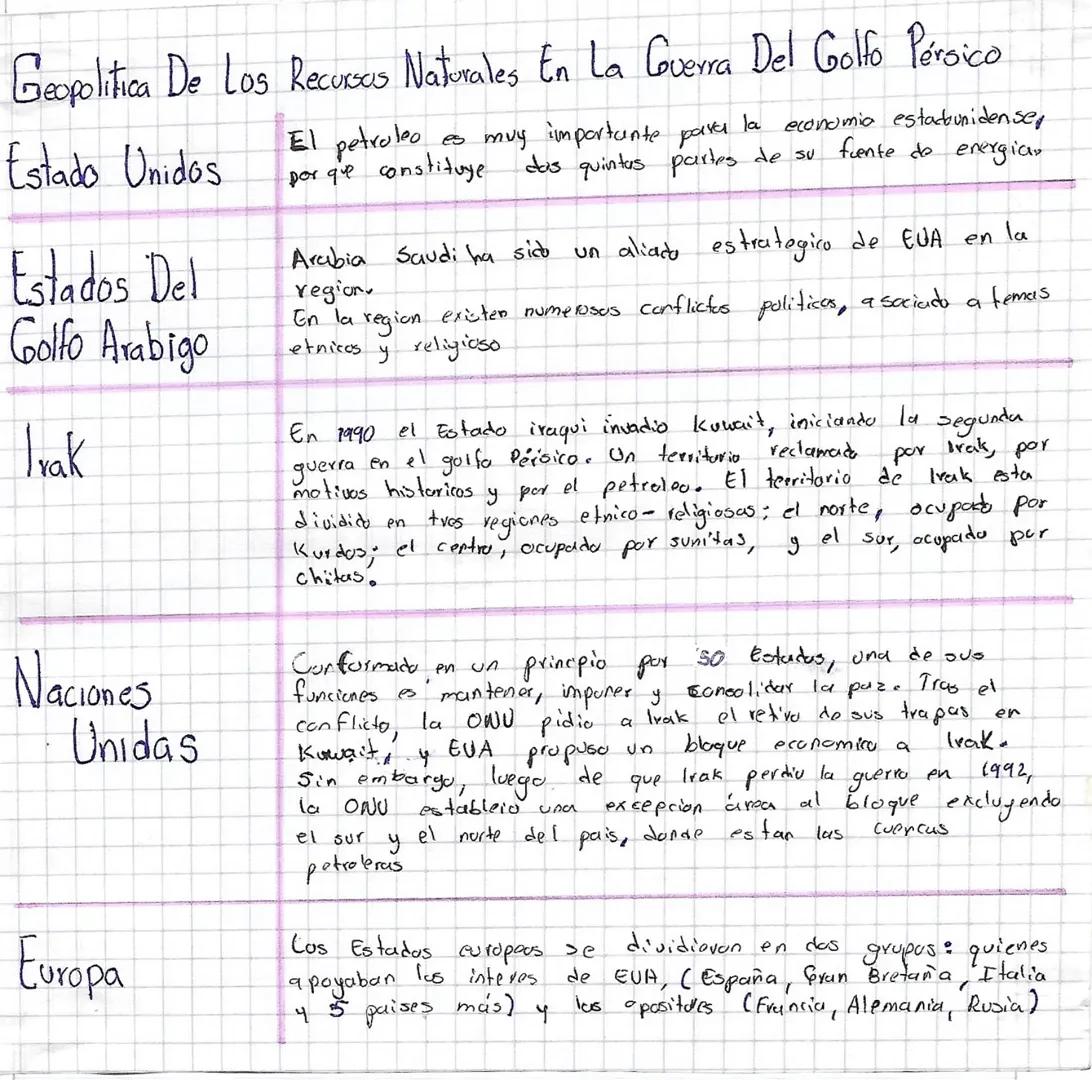 Geopolitica De Los Recursos Naturales En La Guerra Del Golfo Pérsico
Estado Unidos
El petroleo es muy importante para la economia estadunidense,
por que constituye dos quintas partes de su fuente de energia.
Estados Del
Golfo Arabigo
Arabia Saudi ha sido un aliado estrategico de EUA en la
region.
En la region existen numerosos conflictos politicos, asociado a temas
etnicos y religioso
Irak
En 1990 el Estado iraqui invadio Kuwait, iniciando la segunda
guerra en el golfo Pérsico. Un territorio reclamado por Irak, por
motivos historicos y por el petroleo. El territorio de Irak esta
dividido en tres regiones etnico-religiosas; el norte, ocupado por
Kurdos; el centro, ocupado por sunitas, y el sur, ocupado por
chitas.
Naciones
Unidas
Conformado en un principio por 50 Estados, una de sus
funciones es mantener, imponer y consolidar la paz. Tras el
conflicto, la ONU pidio a Irak el retiro de sus tropas en
Kuwait, y EUA propuso un bloque economico a Irak.
Sin embargo, luego de que Irak perdio la guerra en 1992,
la ONU estableio una excepcion área al bloque excluyendo
el sur y el norte del pais, donde estan las cuencas
petroleras
Europa
Los Estados europeos se dividieron en dos grupos: quienes
apoyaban los interes de EUA, (España, Gran Bretaña, Italia
y 5 paises más) y los opositores (Francia, Alemania, Rusia)